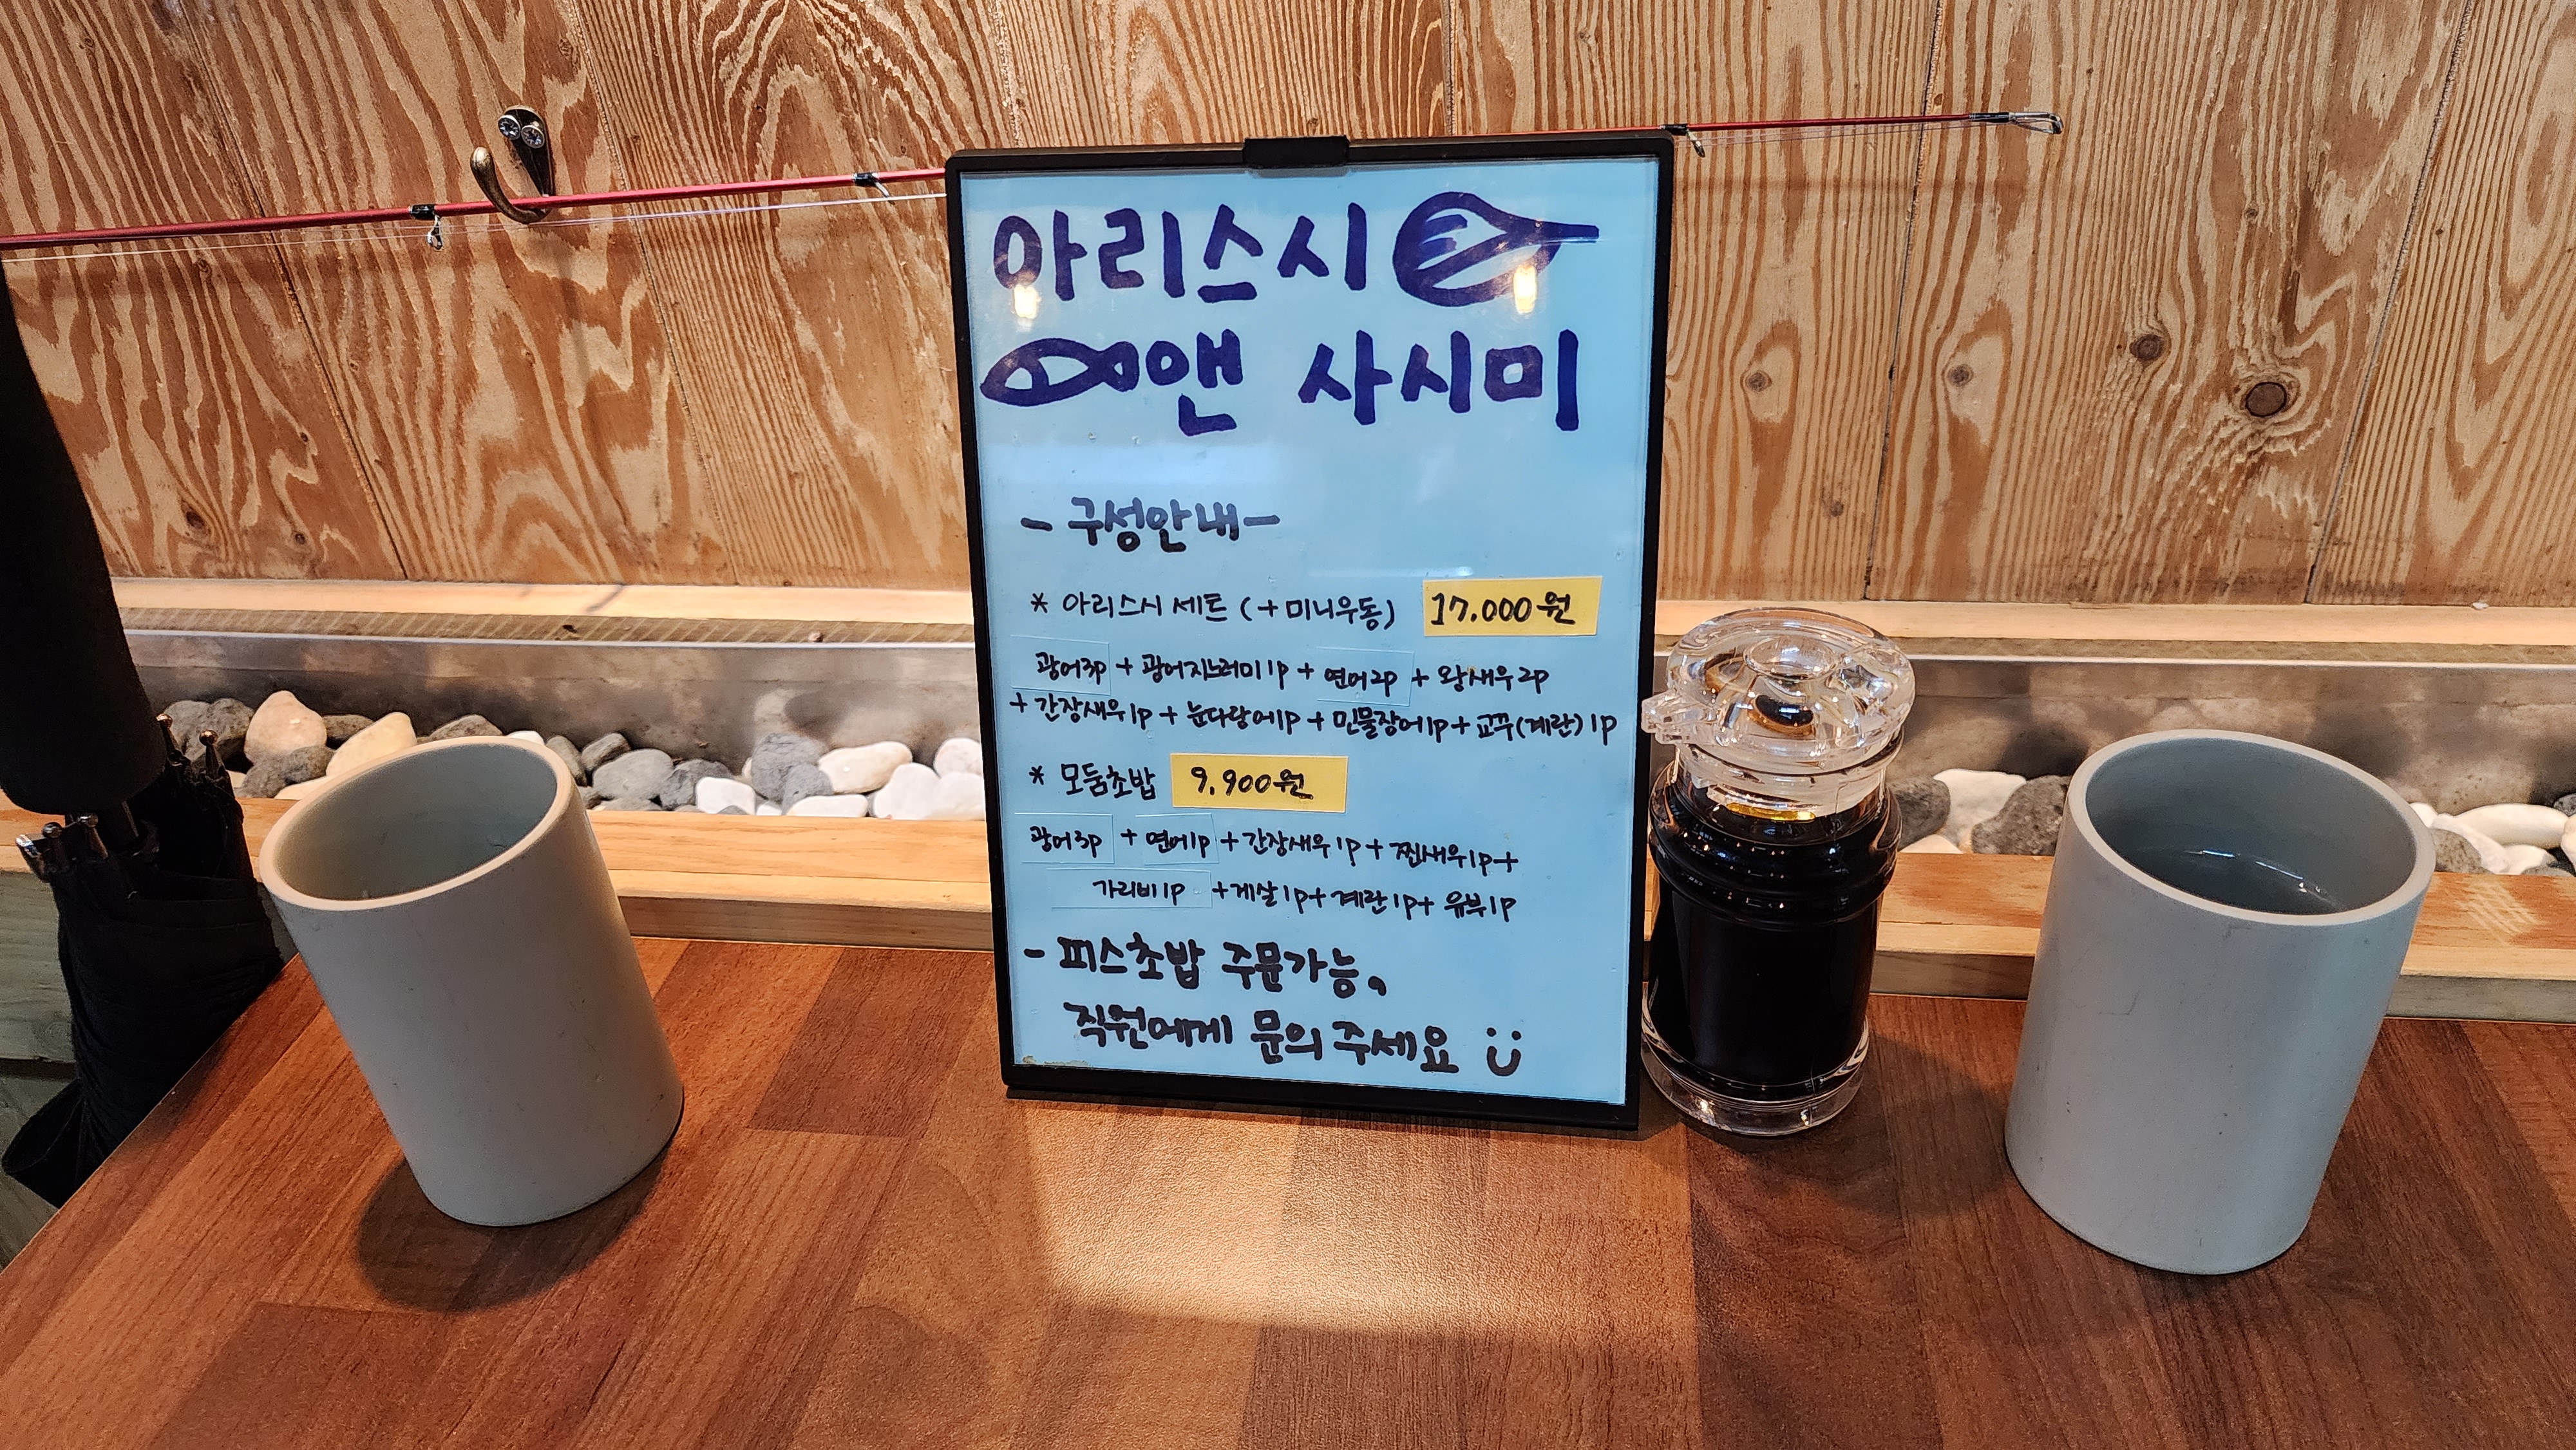 아리스시
앤 사시미
- 구성안내 -
* 아리스시 세트 (+미니우동) 17,000원
광어3p + 광어지느러미1p + 연어2p + 왕새우2p
+ 간장새우1p + 눈다랑어1p + 민물장어1p + 교꾸(계란)1p
* 모둠초밥 9,900원
광어3p + 연어1p + 간장새우1p + 찐새우1p +
가리비1p + 게살1p + 계란1p + 유부1p
- 피스초밥 주문가능.
직원에게 문의 주세요